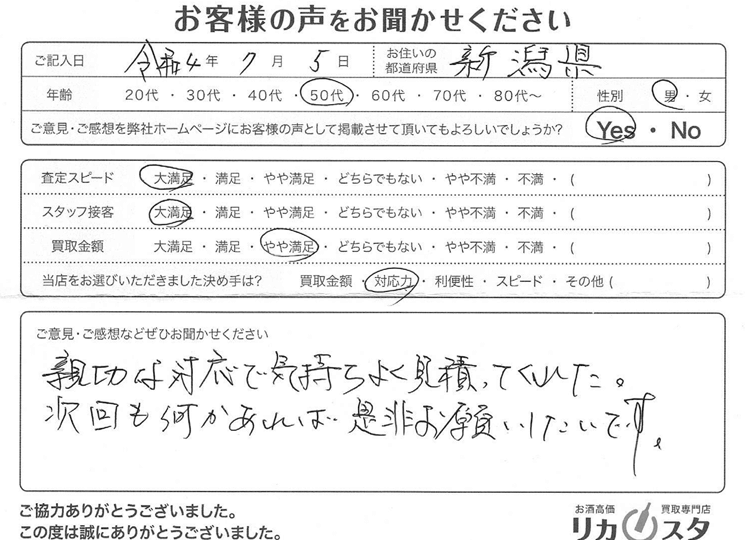 お客様の声をお聞かせください
ご記入日 令和4年 7月 5日 お住いの都道府県 新潟県
年齢 20代・30代・40代・50代・60代・70代・80代〜 性別 男・女
ご意見・ご感想を弊社ホームページにお客様の声として掲載させて頂いてもよろしいでしょうか? Yes・No
査定スピード 大満足・満足・やや満足・どちらでもない・やや不満・不満・( )
スタッフ接客 大満足・満足・やや満足・どちらでもない・やや不満・不満・( )
買取金額 大満足・満足・やや満足・どちらでもない・やや不満・不満・( )
当店をお選びいただきました決め手は? 買取金額・対応力・利便性・スピード・その他( )
ご意見・ご感想などぜひお聞かせください
親切な対応で気持ちよく見積ってくれました。
次回も何かあれば是非お願いしたいです。
ご協力ありがとうございました。
この度は誠にありがとうございます。
お酒高価 買取専門店
リカスタ